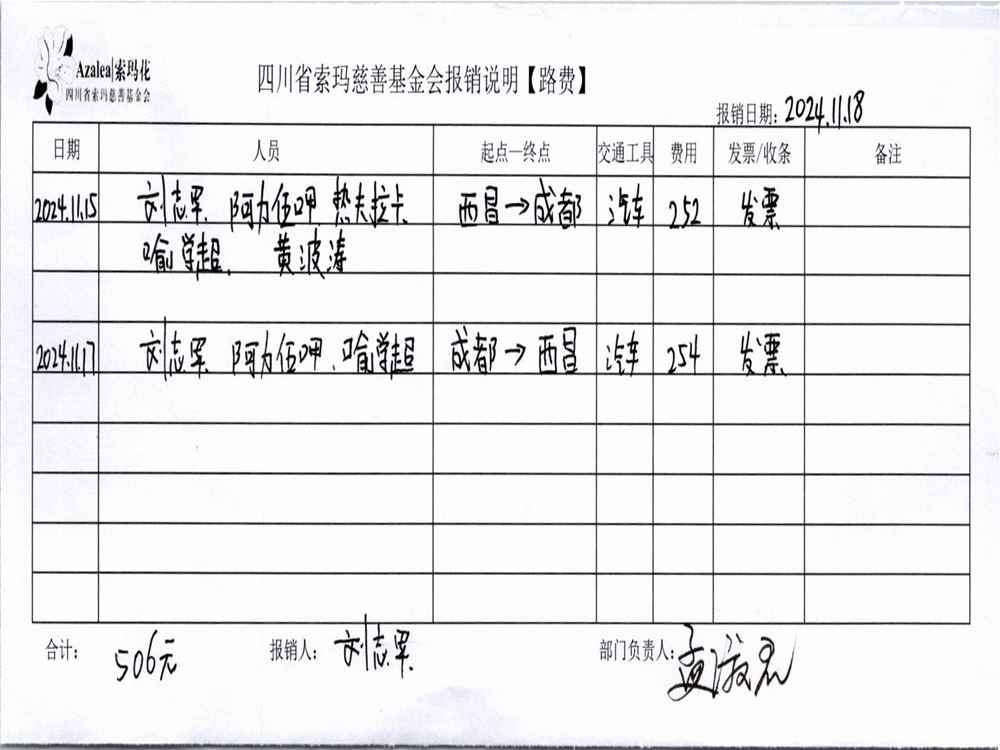 Azalea|索玛花
四川省索玛慈善基金会
四川省索玛慈善基金会报销说明【路费】
报销日期：2024.11.18
日期 人员 起点—终点 交通工具 费用 发票/收条 备注
2024.11.15 刘志军、阿力伍呷 热夫拉卡 西昌→成都 汽车 252 发票
喻学超、 黄波涛
2024.11.17 刘志军、阿力伍呷、喻学超 成都→西昌 汽车 254 发票
合计： 506元 报销人： 刘志军 部门负责人：孟